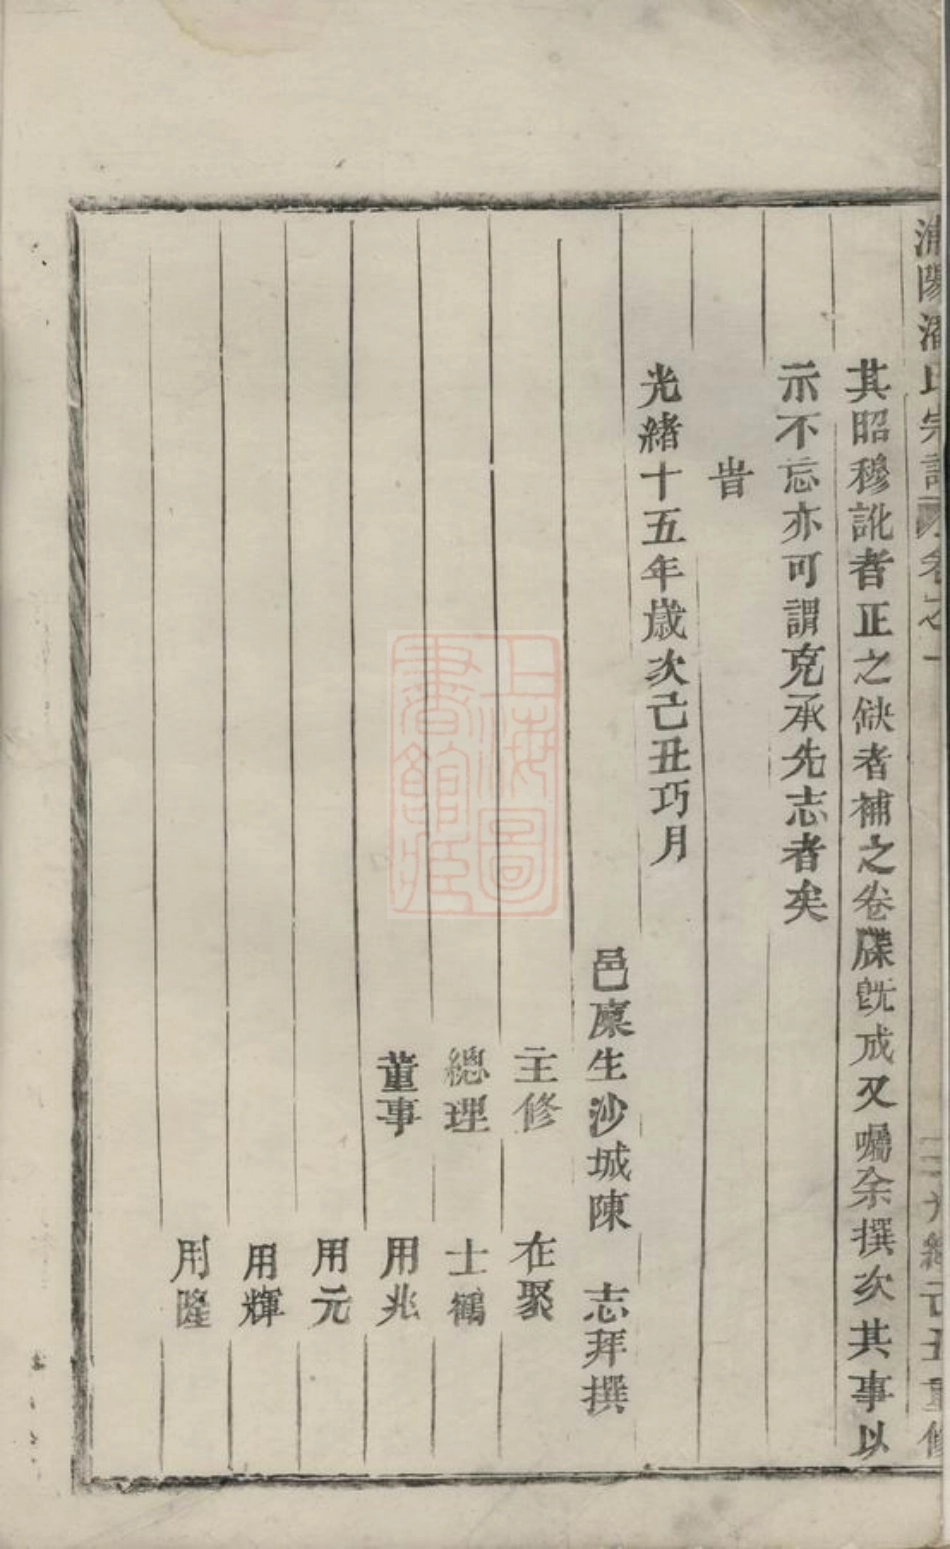 浦陽潘氏宗譜 卷之一 光緒己丑重修
其昭穆訛者正之缺者補之卷牒既成又囑余撰次其事以
示不忘亦可謂克承先志者矣
旹
光緒十五年歲次己丑巧月
邑廩生沙城陳 志拜撰
主修 在聚
總理 士鶴
董事 用兆
用元
用輝
用隆
上海圖書館藏